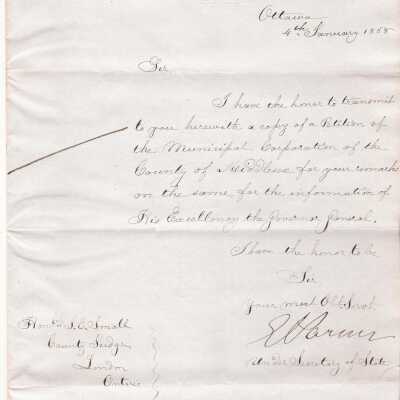 Ottawa
4th January 1868
Sir
I have the honor to transmit
to you herewith a copy of a Petition of
the Municipal Corporation of the
County of Middlesex for your remarks
on the same for the information of
His Excellency the Governor General.
I have the honor to be
Sir
Your most Obt Servt
Under Secretary of State
Honble J. E. Small
County Judge
London
Ontario